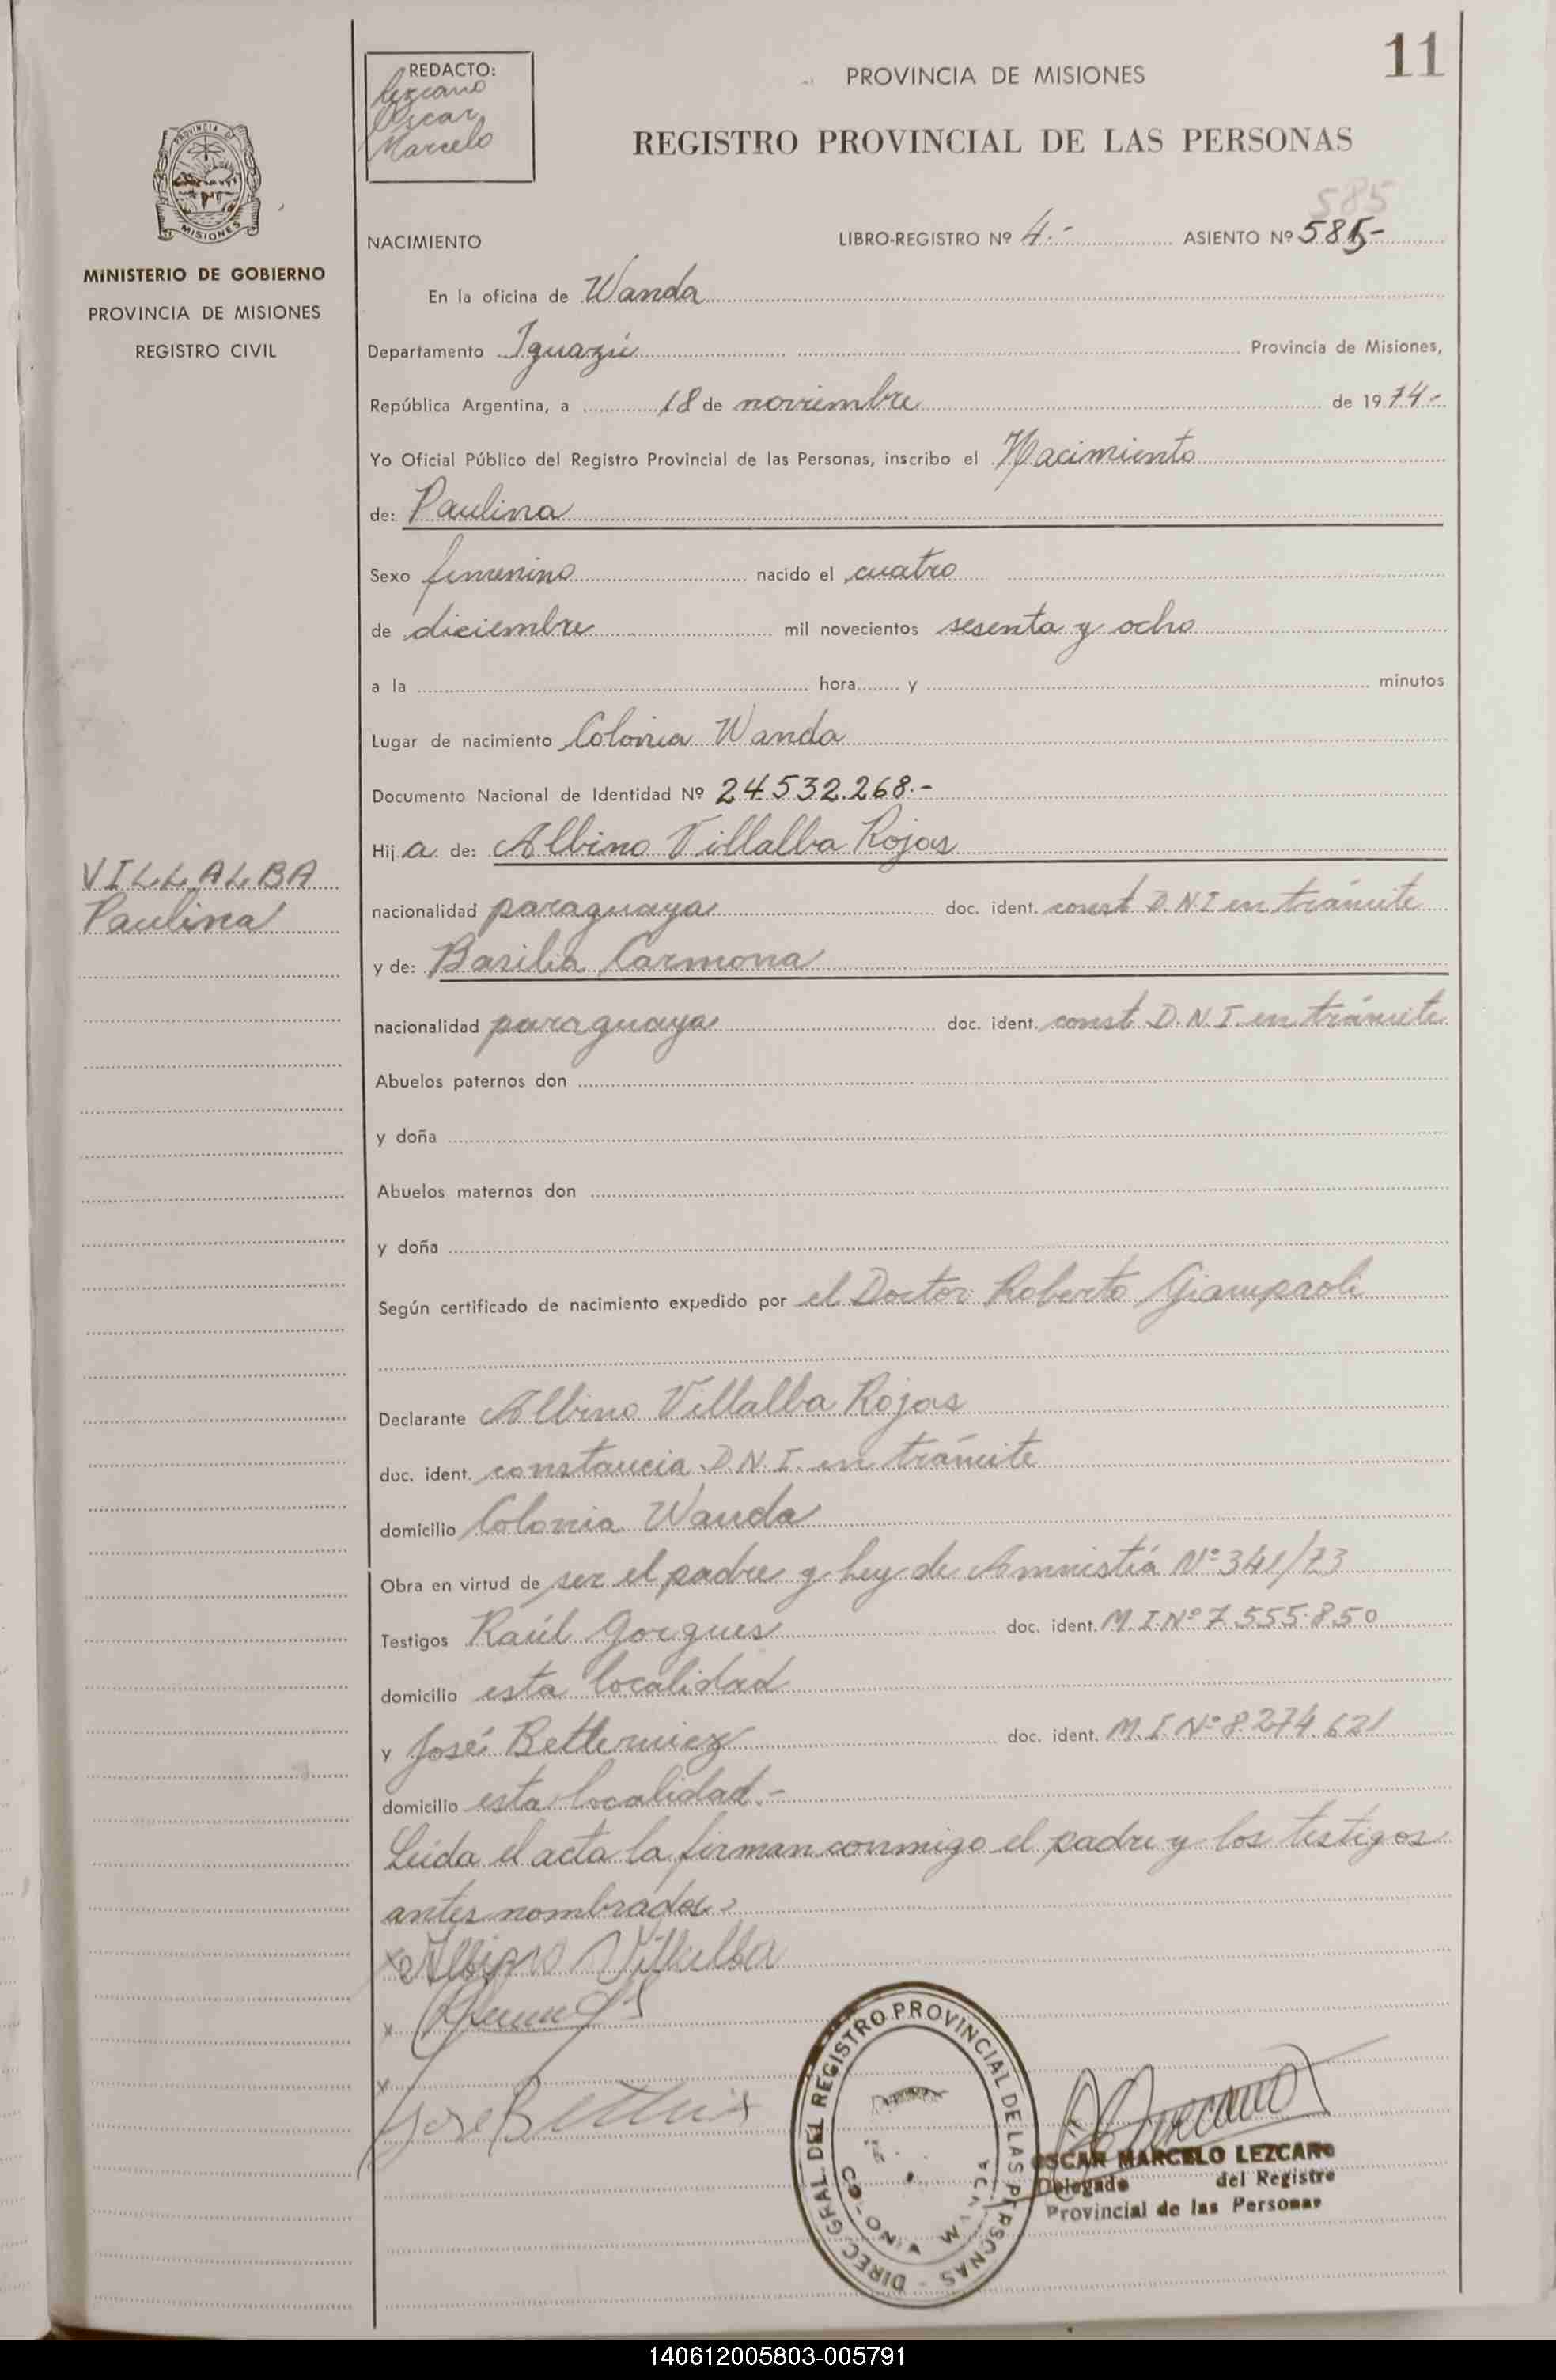 11
REDACTO:
Lezcano
Oscar
Marcelo
PROVINCIA DE MISIONES
REGISTRO PROVINCIAL DE LAS PERSONAS
PROVINCIA DE
MISIONES
MINISTERIO DE GOBIERNO
PROVINCIA DE MISIONES
REGISTRO CIVIL
585
NACIMIENTO LIBRO-REGISTRO Nº 4.- ASIENTO Nº 585-
En la oficina de Wanda
Departamento Iguazú Provincia de Misiones,
República Argentina, a 18 de noviembre de 1974-
Yo Oficial Público del Registro Provincial de las Personas, inscribo el Nacimiento
de: Paulina
Sexo femenino nacido el cuatro
de diciembre mil novecientos sesenta y ocho
a la hora y minutos
Lugar de nacimiento Colonia Wanda
Documento Nacional de Identidad Nº 24.532.268.-
Hij a de: Albino Villalba Rojas
VILLALBA
Paulina
nacionalidad paraguaya doc. ident. const D.N.I en trámite
y de: Basilia Carmona
nacionalidad paraguaya doc. ident. const D.N.I. en trámite
Abuelos paternos don
y doña
Abuelos maternos don
y doña
Según certificado de nacimiento expedido por el Doctor Roberto Giampaoli
Declarante Albino Villalba Rojas
doc. ident. constancia D.N.I. en trámite
domicilio Colonia Wanda
Obra en virtud de ser el padre y Ley de Amnistía Nº 341/73
Testigos Raúl Gorgues doc. ident. M.I.Nº 7.555.850
domicilio esta localidad
y José doc. ident. M.I.Nº 8.274.621
domicilio esta localidad.-
Leida el acta la firman conmigo el padre y los testigos
antes nombrados
x Albino Villalba
x
x
Jose
DIREC. GRAL. DEL REGISTRO PROVINCIAL DE LAS PERSONAS -
COLONIA WANDA
OSCAR MARCELO LEZCANO
Delegado del Registro
Provincial de las Personas
140612005803-005791